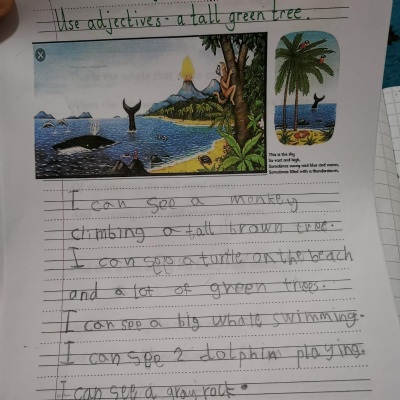 Use adjectives - a tall green tree.
This is the sky
So vast and high,
Sometimes sunny and blue and warm,
Sometimes filled with a thunderstorm.
I can see a monkey
climbing a tall brown tree.
I can see a turtle on the beach
and a lot of green trees.
I can see a big whale swimming.
I can see 2 dolphin playing.
I can see a gray rock.